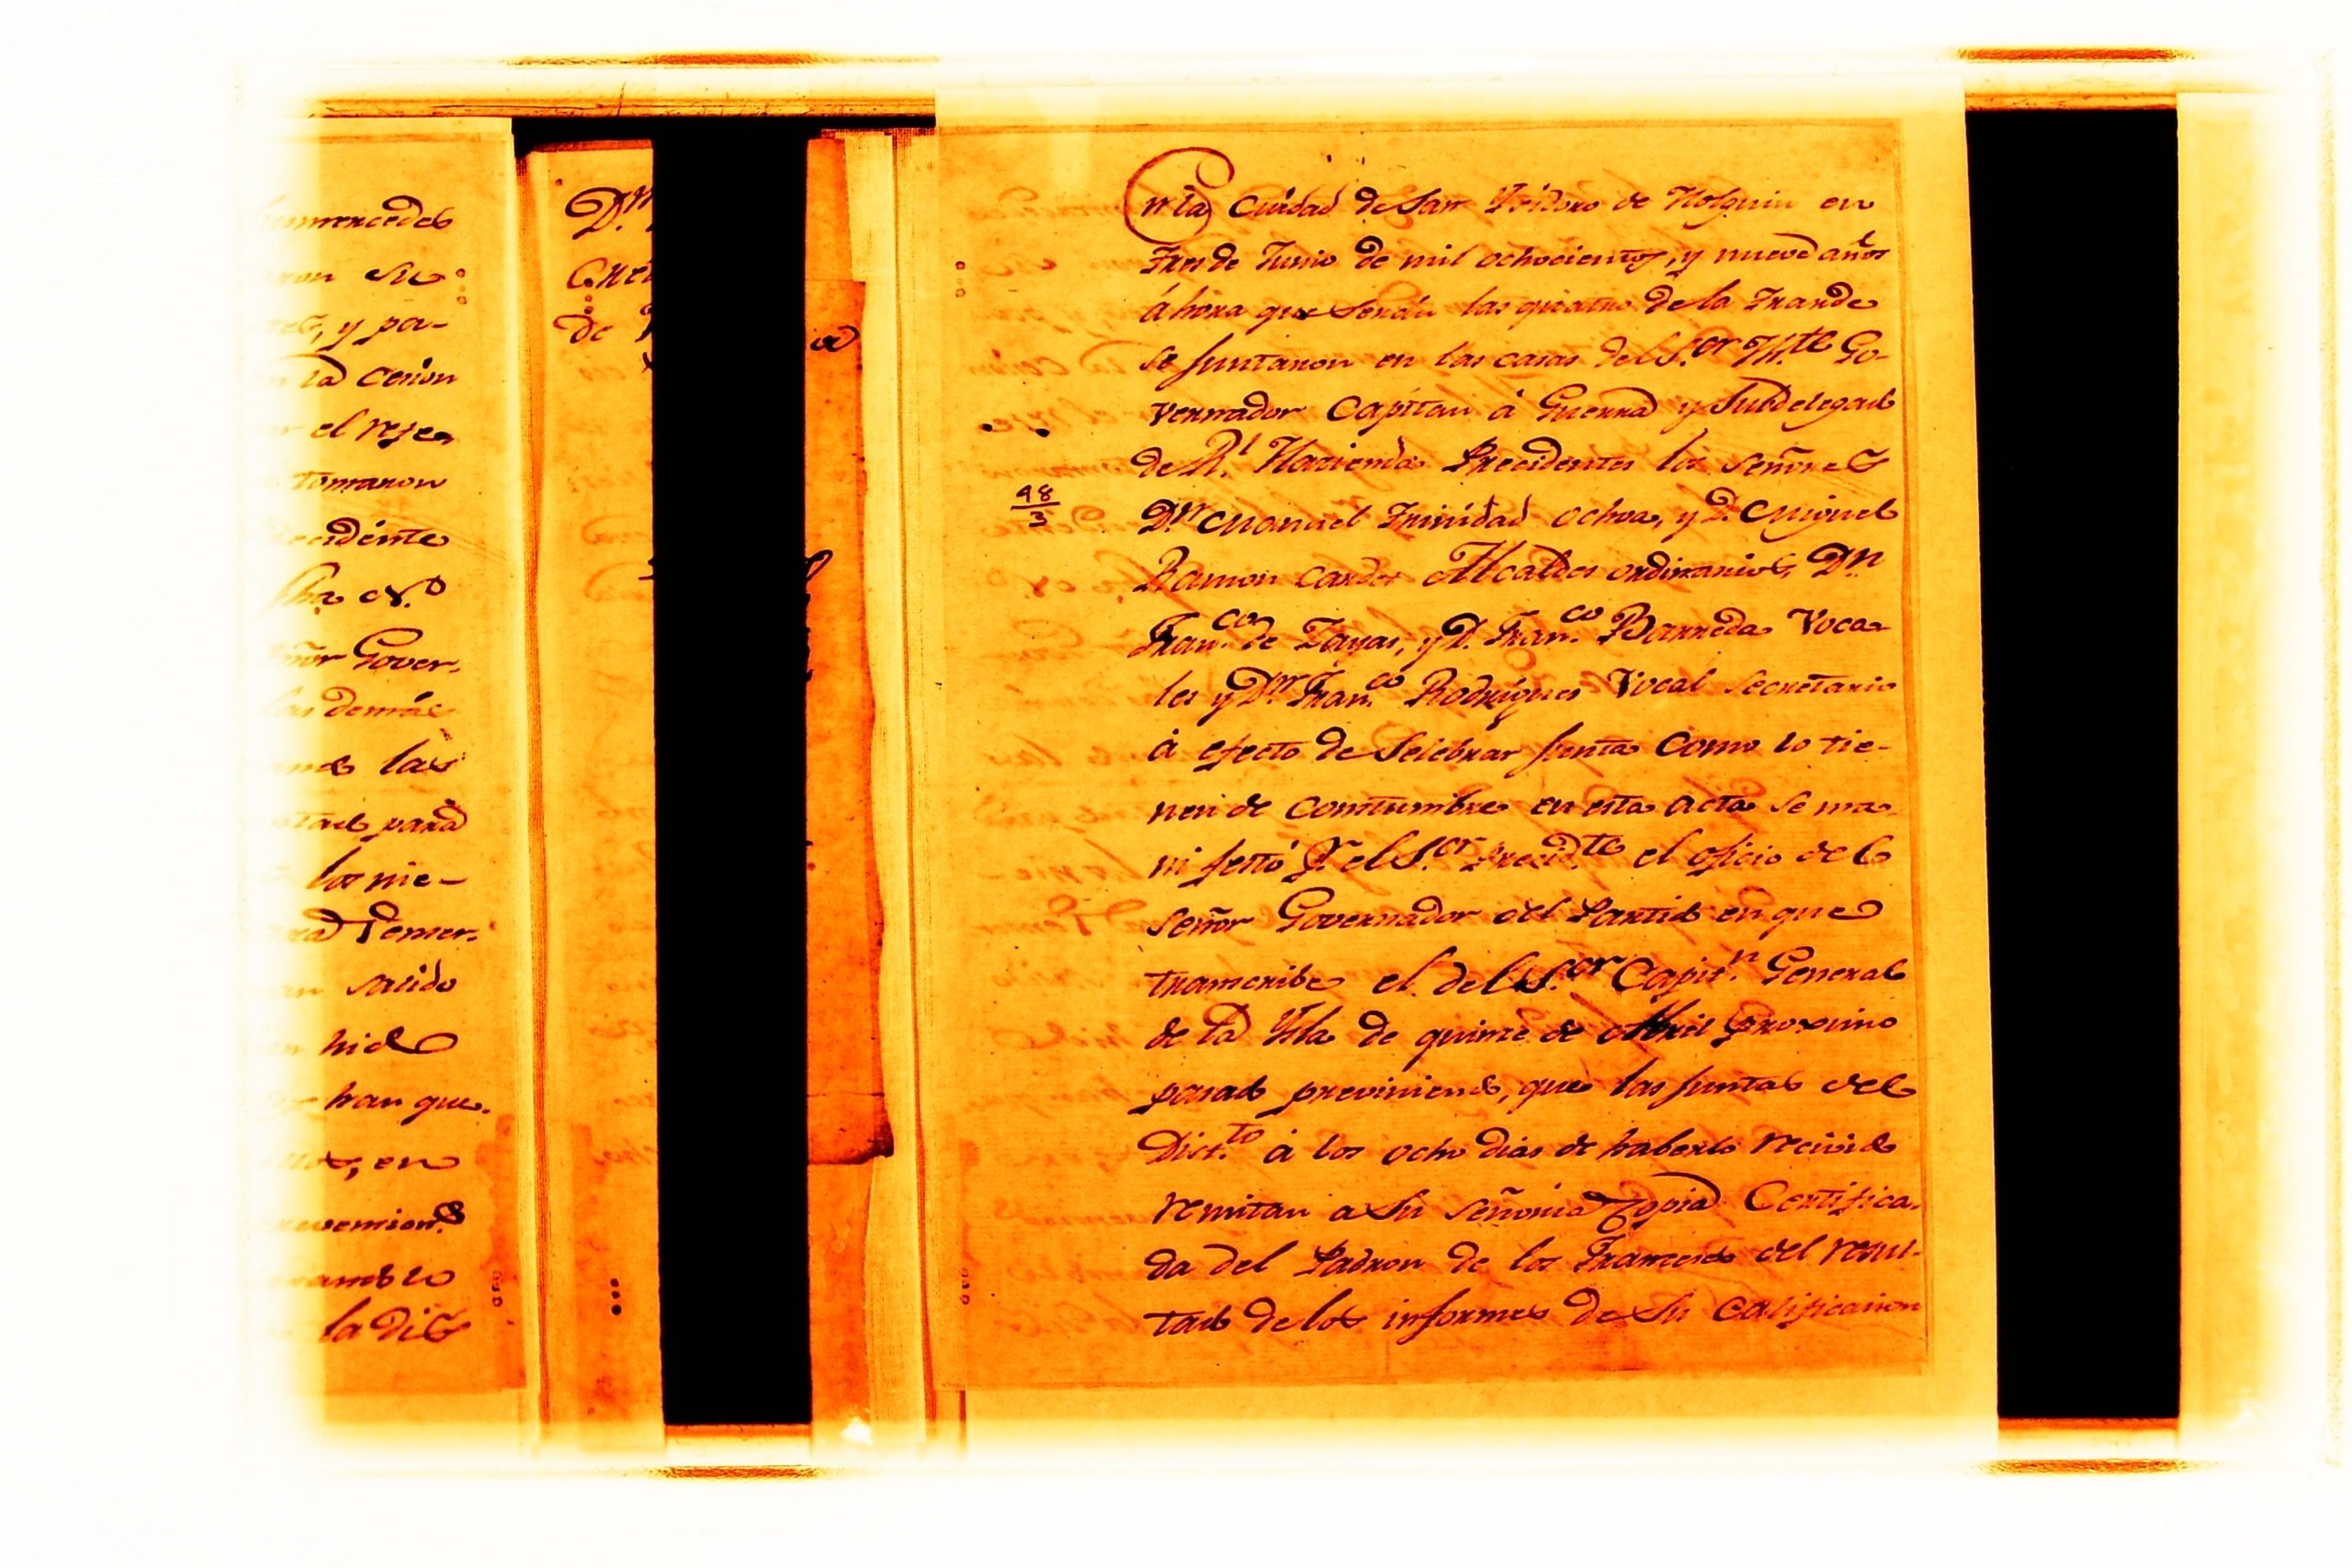 mercedes
su
y pa-
la Cecion
el refe
tomaron
cidente
fha
Gover.
las demas
las
para
los nie-
salido
hido
han que.
en
la dic
Dn
de
48/3
En la Ciudad de San Ysidoro de Holguin en
tres de Junio de mil ochocientos, y nueve años
á hora que serán las quatro de la tarde
se juntaron en las casas del S.or Th.te Go-
vernador Capitan á Guerra y Subdelegado
de R.l Hazienda Precidentes los señores
D.n Manuel Trinidad Ochoa, y D. Miguel
Ramon Cardet Alcaldes ordinarios, D.n
Fran.co de Zayas, y D. Fran.co Barreda Voca-
les y D.n Fran.co Rodrigues Vocal Secretario
á efecto de selebrar junta como lo tie-
nen de constumbre en esta acta se ma-
nifestó p.r el S.or Precid.te el oficio del
señor Governador del Partido en que
transcribe el del S.or Capit.n General
de la Ysla de quinse de Abril proximo
pasado previniendo, que las juntas del
Dist.to á los ocho dias de haberlo recivido
remitan a su señoria Copia Certifica-
da del Padron de los Franceses del resul-
tado de los informes de su calificacion